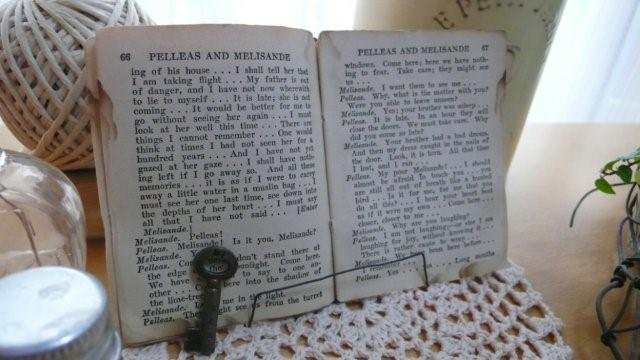 66 PELLEAS AND MELISANDE
ing of his house . . . I shall tell her that
I am taking flight . . . My father is out
of danger, and I have not now wherewith
to lie to myself . . . It is late; she is not
coming . . . It would be better for me to
go without seeing her again . . . I must
look at her well this time . . . There are
things I cannot remember . . . One would
think at times I had not seen her for a
hundred years . . . And I have not yet
gazed at her gaze . . . I shall have noth-
ing left if I go away so. And all these
memories . . . it is as if I were to carry
away a little water in a muslin bag . . . I
must see her one last time, see down into
the depths of her heart . . . I must say
all that I have not said . . . [Enter
Melisande.]
Melisande. Pelleas!
Pelleas. Melisande! Is it you, Melisande?
Melisande.
Pelleas. don't stand at
the edge moonlight. Come here.
We have to say to one an-
other . . . here into the shadow of
the lime-tree
Melisande. me in the light.
Pelleas. They might see us from the turret
PELLEAS AND MELISANDE 67
windows. Come here; here we have noth-
ing to fear. Take care; they might see
us . . .
Melisande. I want them to see me . . .
Pelleas. Why, what is the matter with you?
Were you able to leave unseen?
Melisande. Yes; your brother was asleep . . .
Pelleas. It is late. In an hour they will
close the doors. We must take care. Why
did you come so late?
Melisande. Your brother had a bad dream.
And then my dress caught in the nails of
the door. Look, it is torn. All that time
I lost, and I ran . . .
Pelleas. My poor Melisande! . . . I should
almost be afraid to touch you . . . you
are still all out of breath like a hunted
bird . . . Is it for me, for me that you
do all this? . . . I hear your heart beat
as if it were my own . . . Come here . . .
closer, closer to me . . .
Melisande. Why are you laughing?
Pelleas. I am not laughing;—or else I am
laughing for joy, without knowing it . . .
There is rather cause to weep . . .
Melisande. We have been here before . . .
I remember . . .
Pelleas. Yes . . . Long months